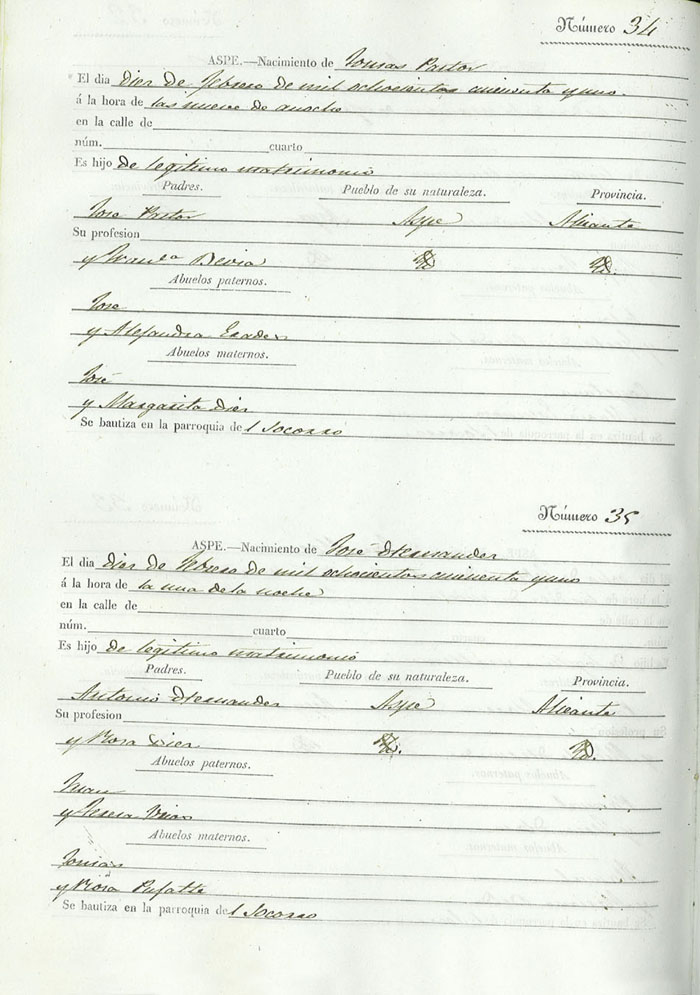 Número 34
ASPE.—Nacimiento de Tomas Pastor
El dia diez de febrero de mil ochocientos cincuenta y uno
á la hora de las nueve de anoche
en la calle de
núm. cuarto
Es hijo de legitimo matrimonio
Padres. Pueblo de su naturaleza. Provincia.
Jose Pastor Aspe Alicante
Su profesion
y
Abuelos paternos.
Jose
y Alejandra
Abuelos maternos.
José
y Margarita Diez
Se bautiza en la parroquia del Socorro
Número 35
ASPE.—Nacimiento de José Hernandez
El dia diez de febrero de mil ochocientos cincuenta y uno
á la hora de la una de la noche
en la calle de
núm. cuarto
Es hijo de legitimo matrimonio
Padres. Pueblo de su naturaleza. Provincia.
Antonio Hernandez Aspe Alicante
Su profesion
y Rosa Diez
Abuelos paternos.
Juan
y Teresa
Abuelos maternos.
Tomas
y Rosa
Se bautiza en la parroquia del Socorro